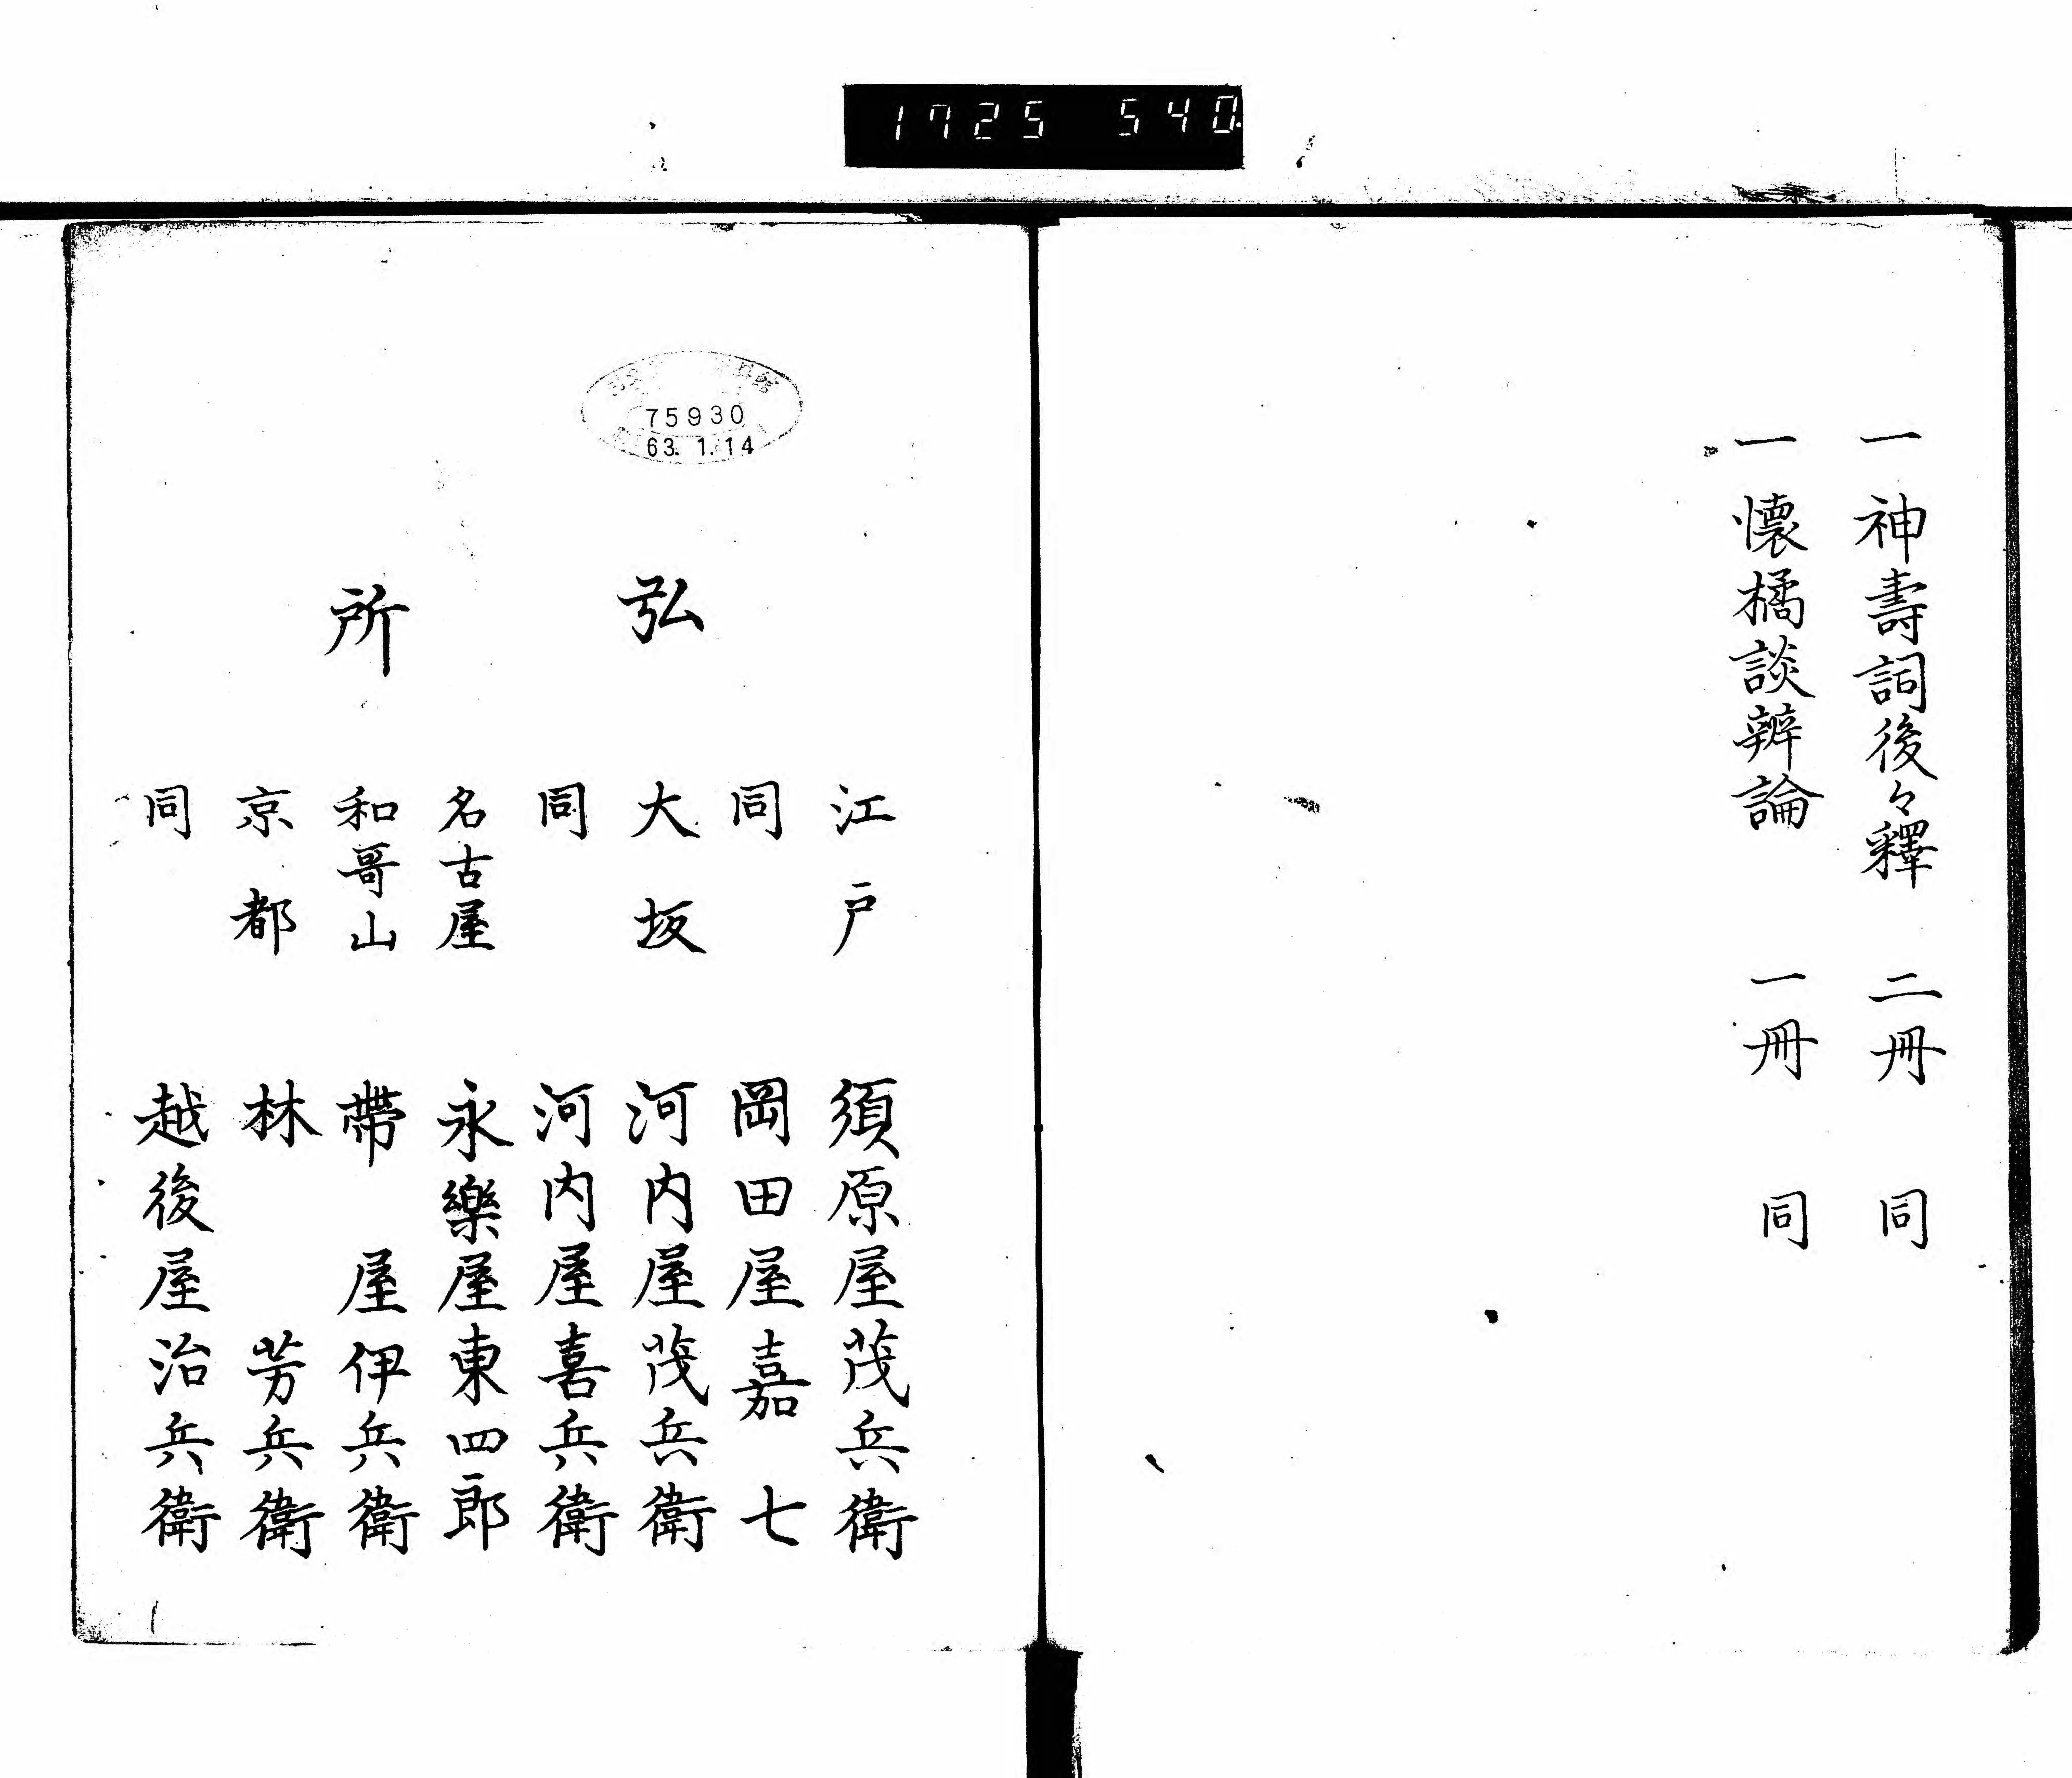 1725 540
一 神壽詞後々釋 二冊 同
一 懷橘談辨論 一冊 同
75930
63. 1. 14
弘所
江戸 須原屋茂兵衛
同 岡田屋嘉七
大坂 河内屋茂兵衛
同 河内屋喜兵衛
名古屋 永樂屋東四郎
和哥山 帶屋伊兵衛
京都 林芳兵衛
同 越後屋治兵衛